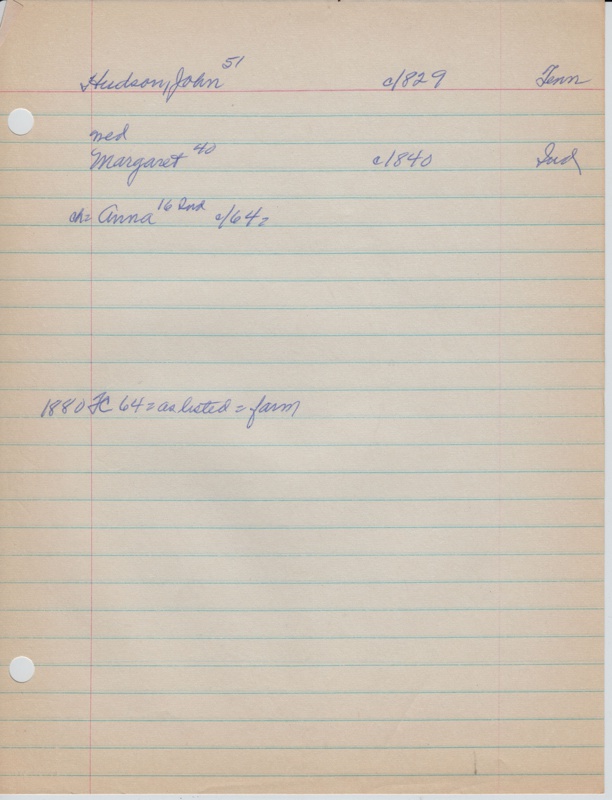 Hudson, John 51 c/829 Tenn
med
Margaret 40 c1840 Ind
ch= Anna 16 Ind c/64=
1880 FC 64 = as listed = farm